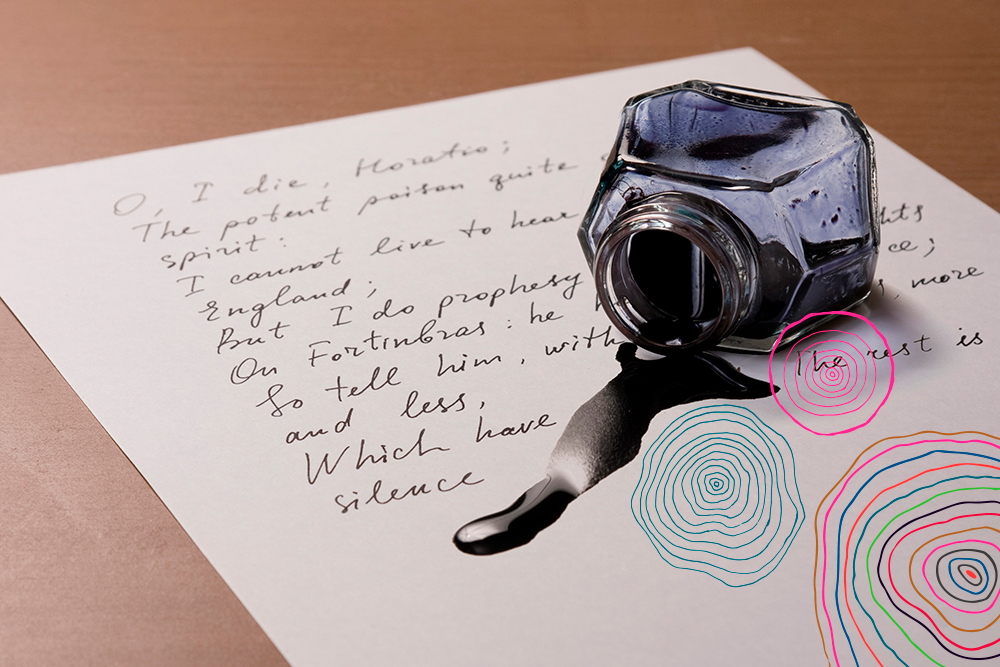 O, I die, Horatio;
The potent poison quite
spirit:
I cannot live to hear
England;
But I do prophesy ghts
On Fortinbras: he ce;
So tell him, with , more
and less,
Which have The rest is
silence